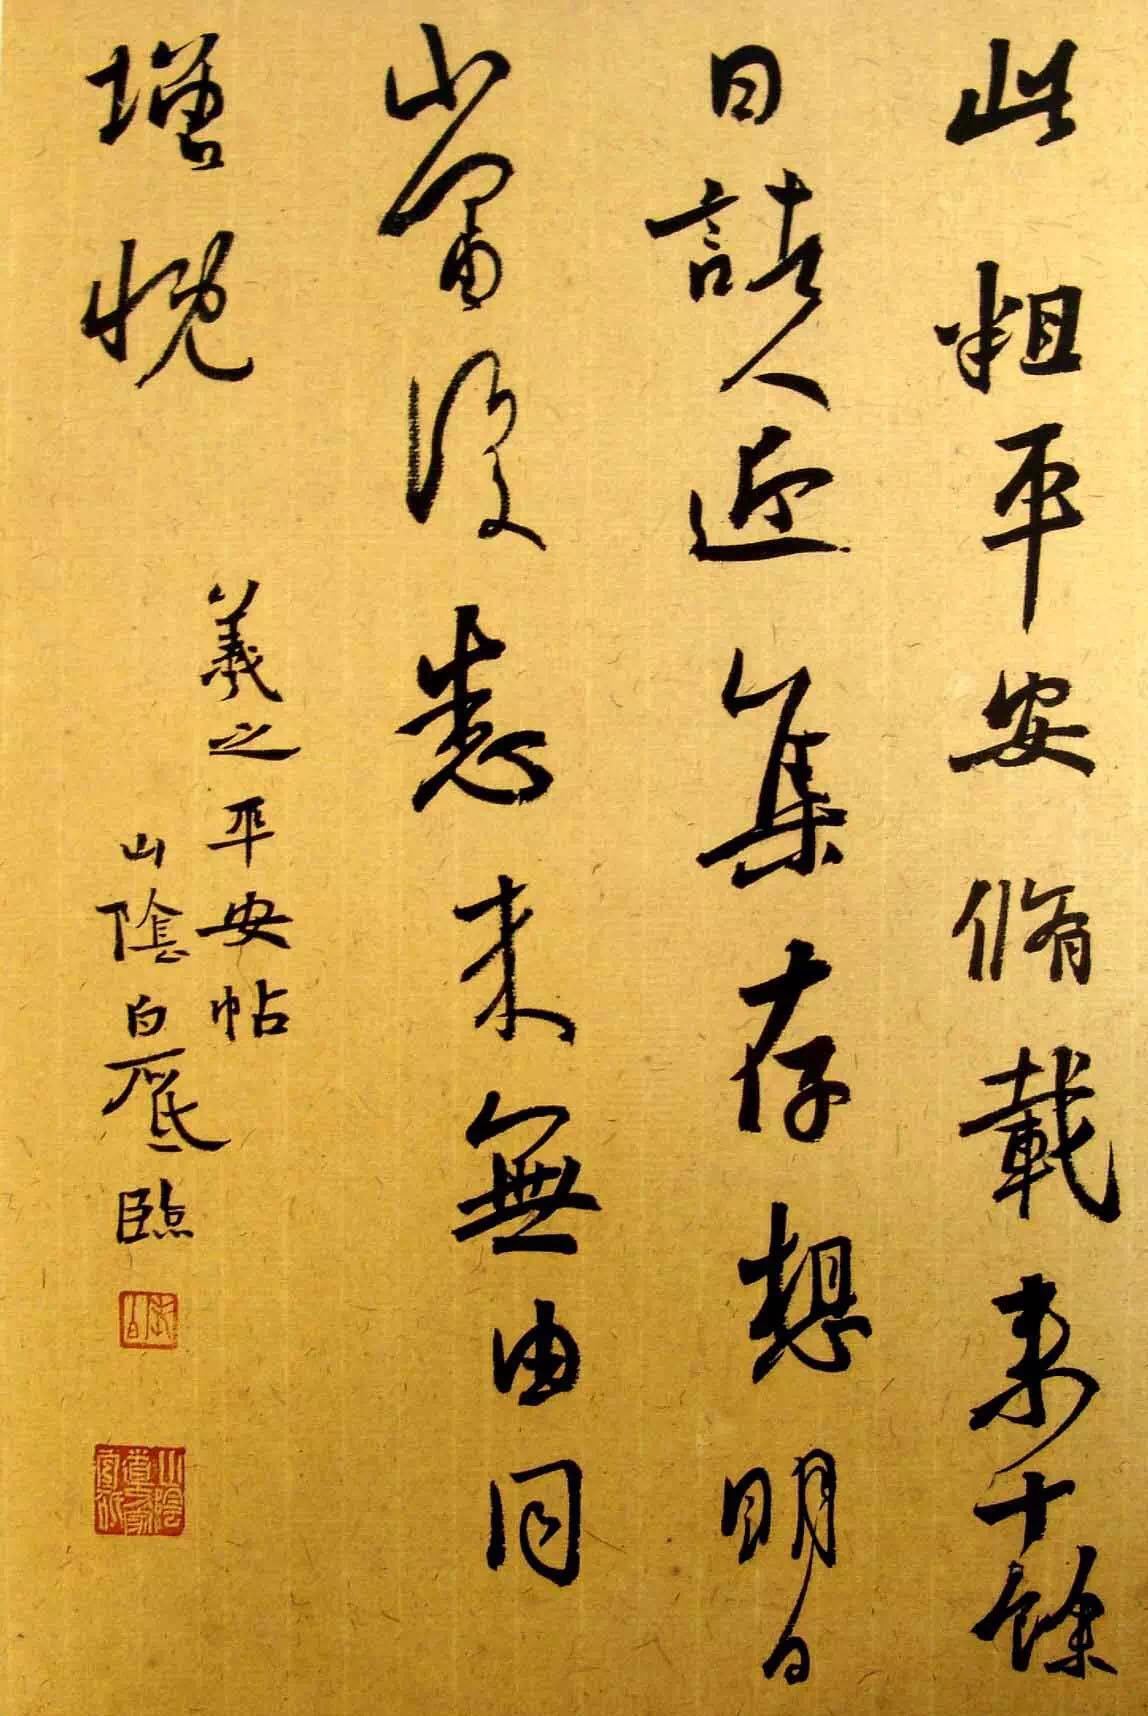 此粗平安脩載來十餘
日諸人近集存想明日
當復悉來無由同
增慨
羲之平安帖
山陰白
臨